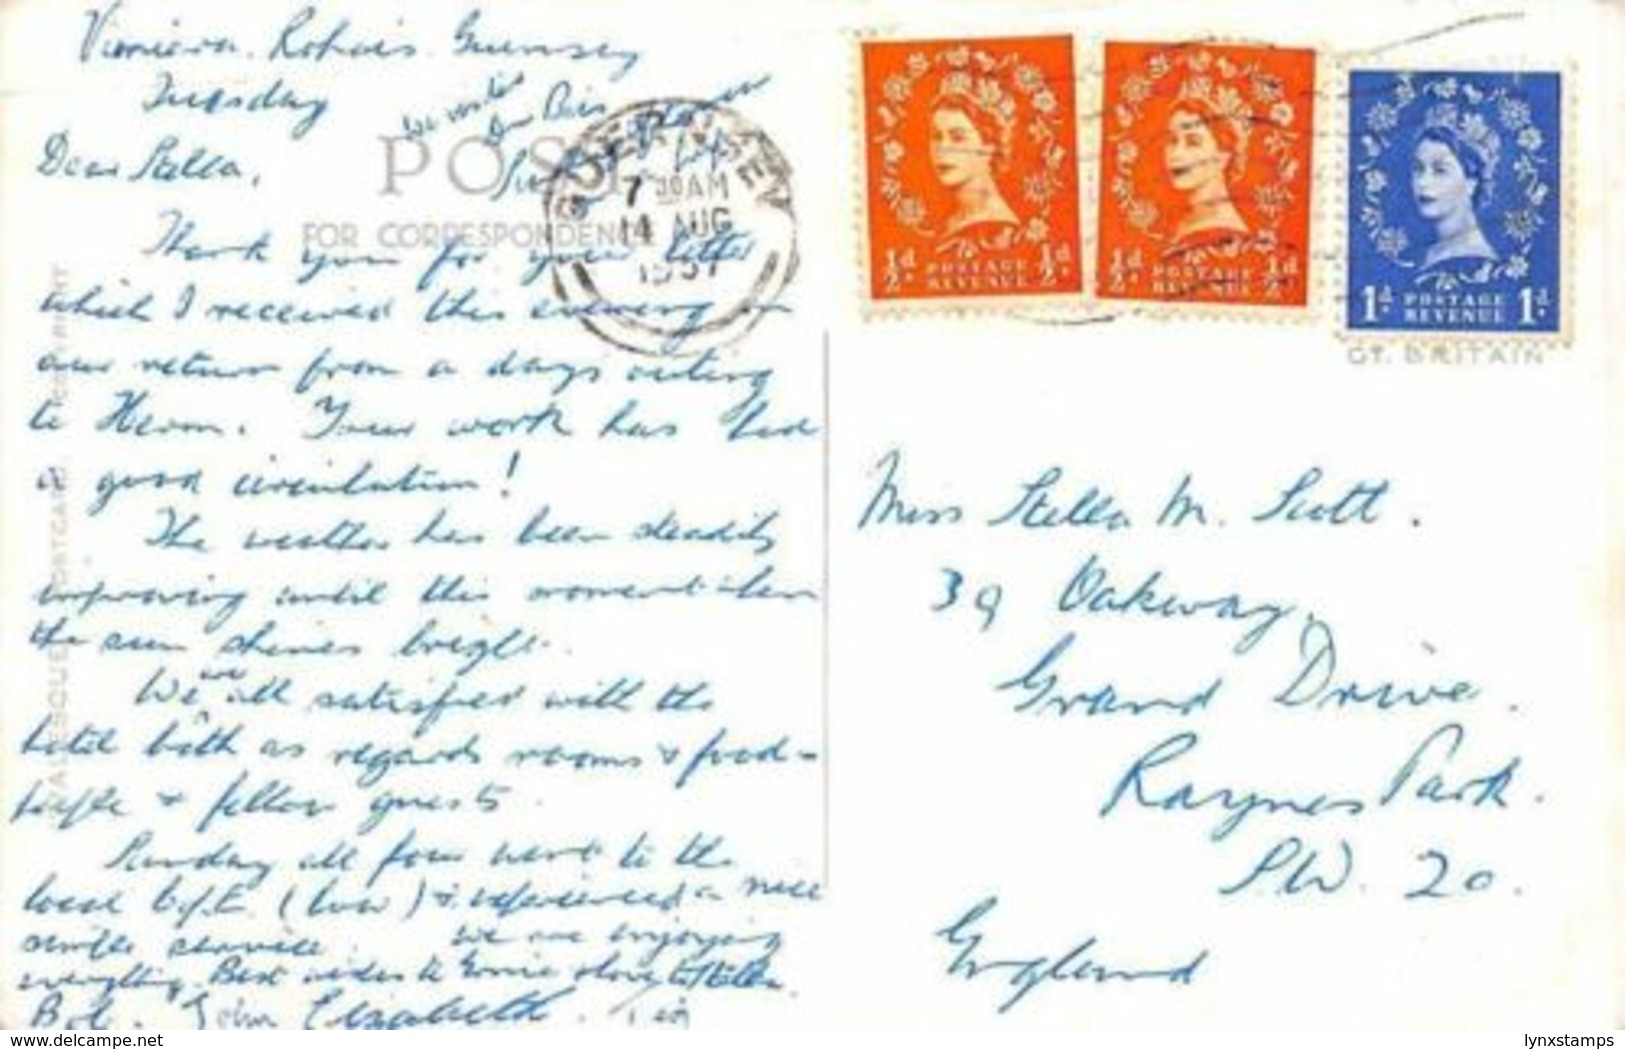 Rohais. Guernsey
Tuesday
Dear Stella,
POST
FOR CORRESPONDENCE
GUERNSEY
7 30 AM
14 AUG
1957
Thank you for your letter
which I received this evening on
our return from a days outing
to Herm. Your work has had
a good circulation!
The weather has been steadily
improving until this moment when
the sun shines bright.
We are all satisfied with the
hotel both as regards rooms & food -
people & fellow guests.
Sunday all four went to the
local C. of E. (low) & experienced a nice
simple service. We are enjoying
everything. Best wishes to Ernie & love to Stella.
Bob. John Elizabeth.
VALESQUE POSTCARD
½d POSTAGE REVENUE ½d
½d POSTAGE REVENUE ½d
1d. POSTAGE REVENUE 1d.
GT. BRITAIN
Miss Stella M. Scott.
39 Oakway,
Grand Drive.
Raynes Park.
S.W. 20.
England
www.delcampe.net
lynxstamps